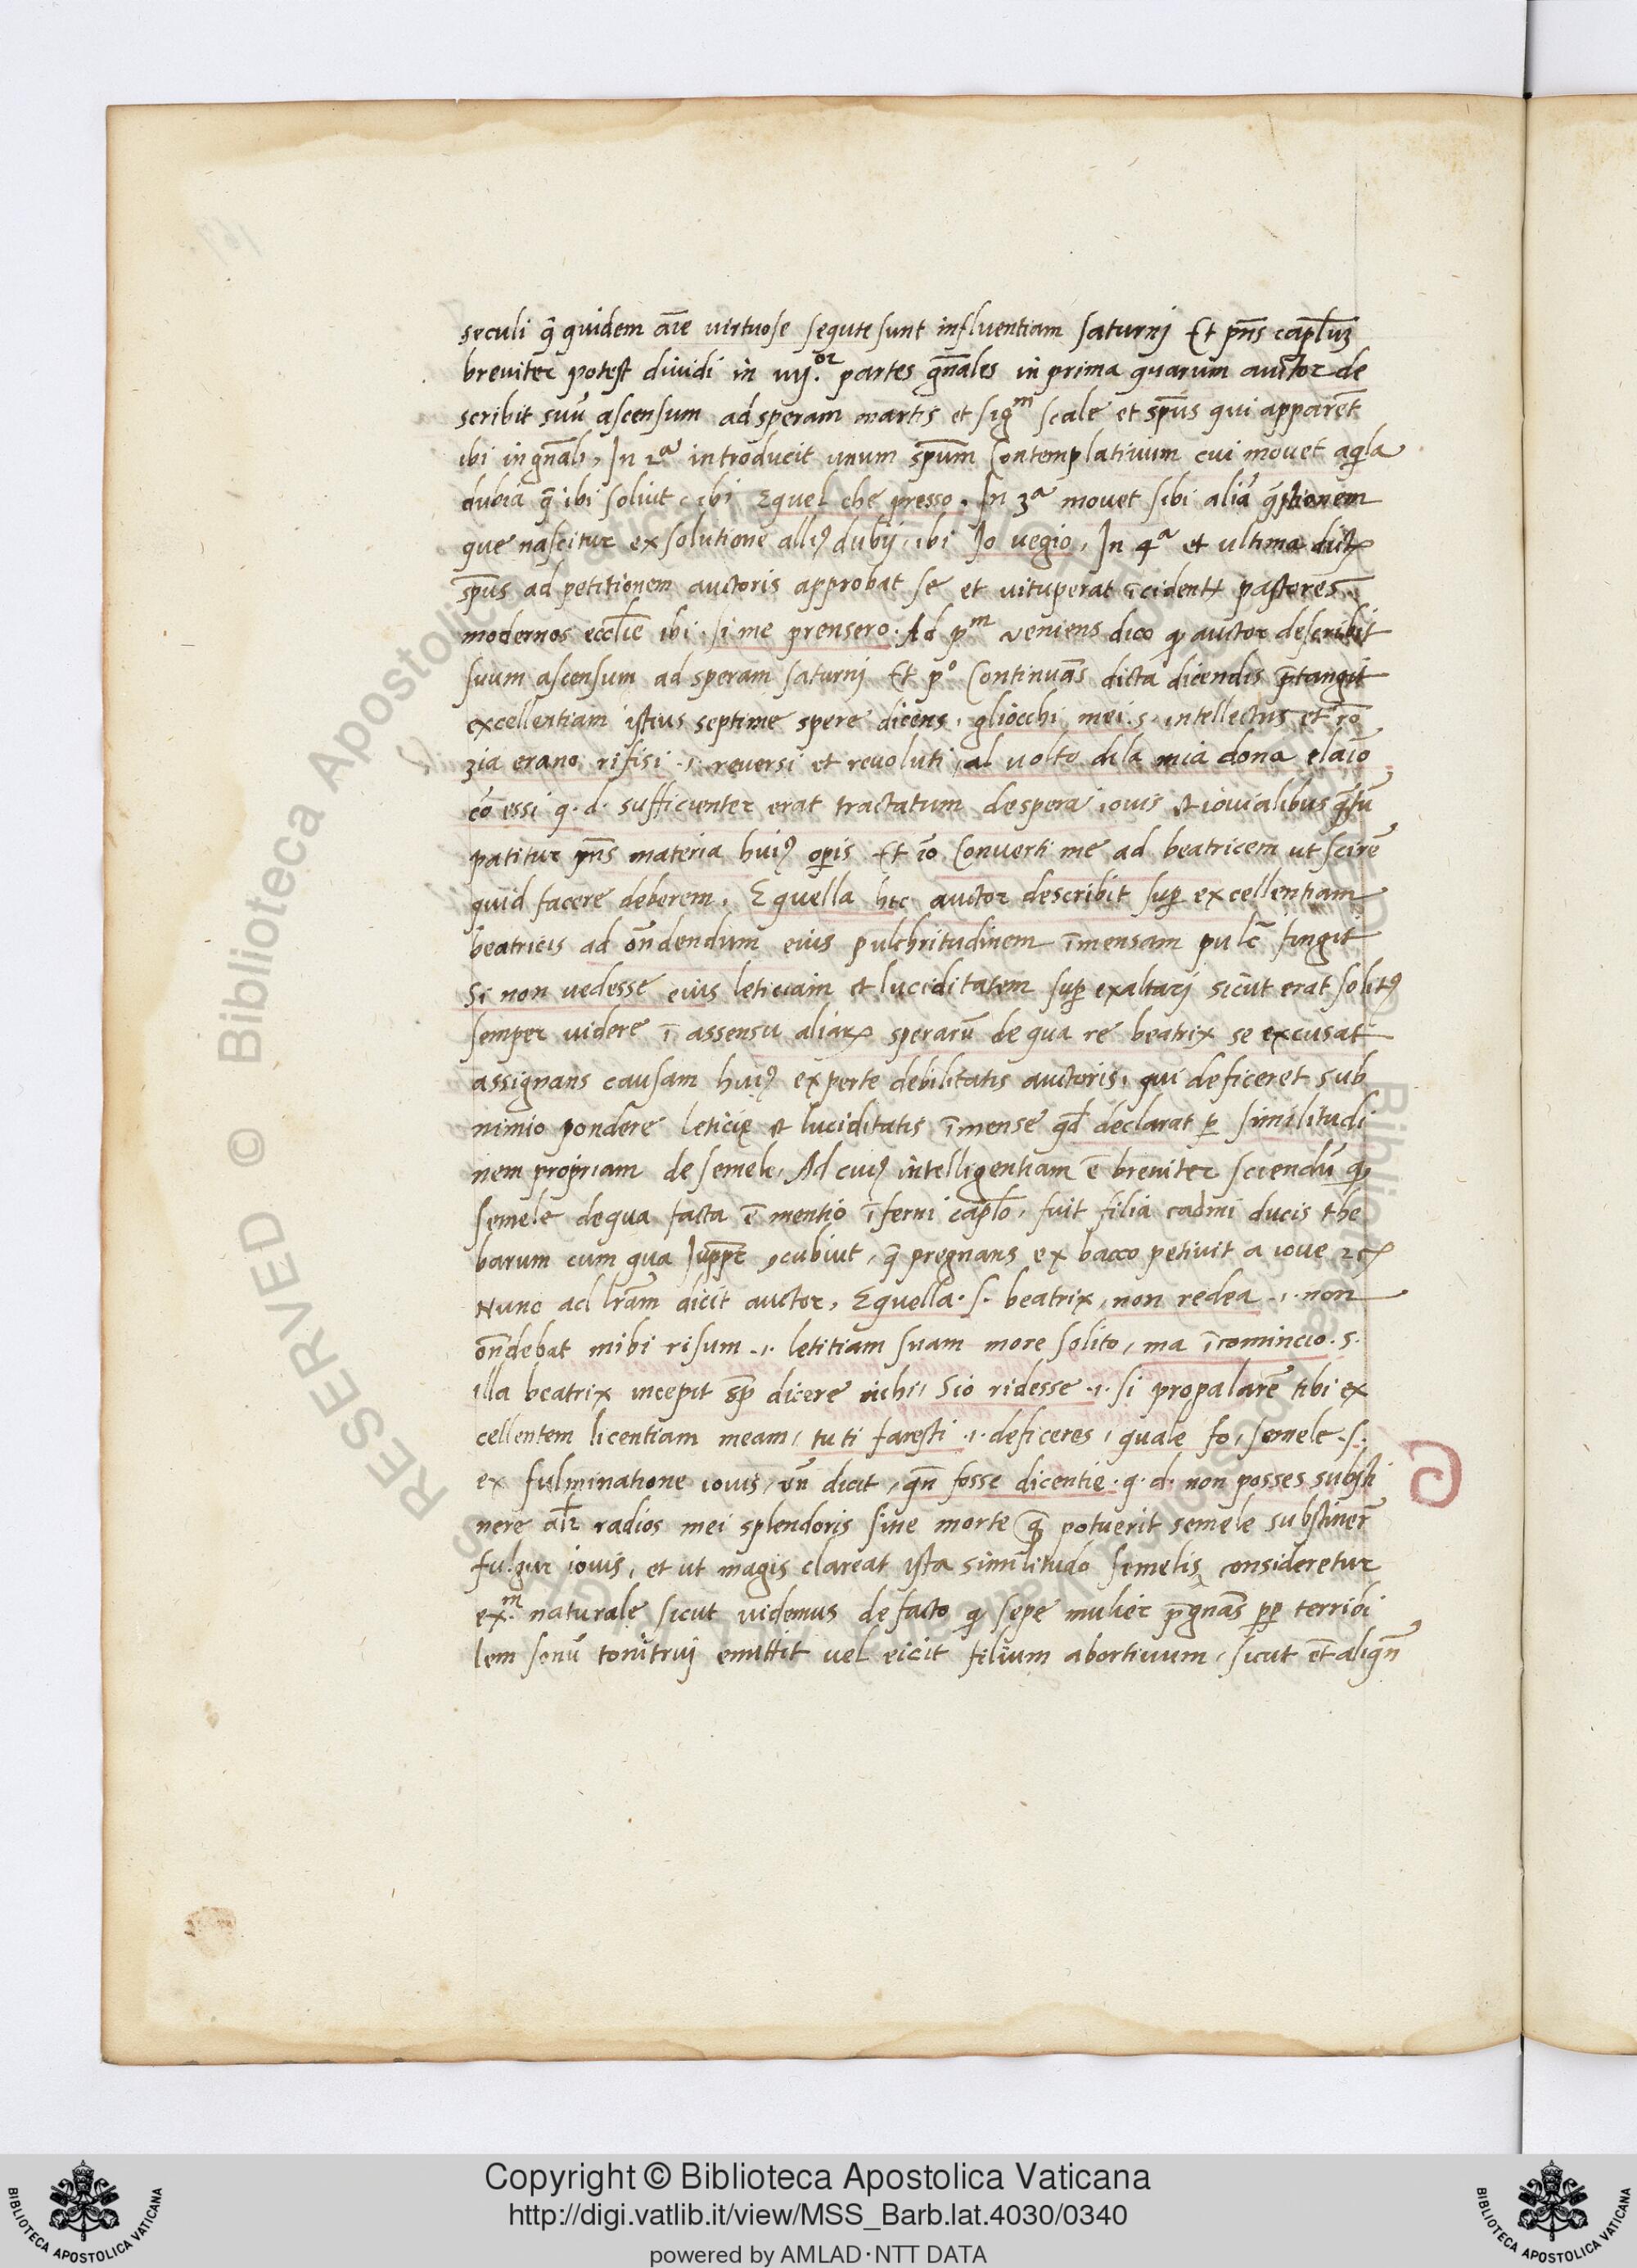 seculi q̃ quidem aĩe virtuose sequte sunt influentiam saturnj Et pñs capl̃uʒ
breviter potest dividi in iiij.or partes gñales in prima quarum auctor de
scribit suũ ascensum ad speram martis et sigm scale et sp̃us qui apparẽt
ibi in gñali, In 2a introducit unum sp̃um Contemplativum cui movet aq̃la
dubia q̃ ibi solvit, ibi Equel che presso. In 3a movet sibi aliã q̃stionem
que nascitur ex solutione alliꝰ dubij, ibi Io vegio, In 4a et ultima dictꝰ
sp̃us ad petitionem auctoris approbat se et vituperat ĩcidentr pastores
modernos eccl̃ie ibi. si me prensero. Ad pm veniens dico ꝙ auctor describit
suum ascensum ad speram saturnj Et po Continuãs dicta dicendis p̃tangit
excellentiam istius septime spere dicens, gliocchi mei .s. intellectus et rõ
ʒia erano rifisi .i. reversi et revoluti, al volto dila mia dona elaĩo
cõ essi q. d. sufficienter erat tractatum de spera iovis et iovialibus q̃tũ
patitur pñs materia huiꝰ opis Et iõ Converti me ad beatricem ut scirẽ
quid facere deberem, Equella hec auctor describit sup excellentiam
beatricis ad oñdendum eius pulchritudinem ĩmensam pulc̃ fingit
Si non vedesse eius leticiam et luciditatem sup exaltarj sicut erat solitꝰ
semper videre ĩ assensu aliarꝝ sperarũ de qua re beatrix se excusat
assignans causam huiꝰ ex perte debilitatis auctoris, qui deficeret sub
nimio pondere leticie et luciditatis ĩmense qd̃ declarat ꝑ similitudi
nem propriam de semele, Ad cuiꝰ intelligentiam ẽ breviter sciendũ ꝙ
semele de qua facta ẽ mentio ĩferni capl̃o, fuit filia cadmi ducis the
barum cum qua Juppr̃ ꝯcubiut, q̃ pregnans ex bacco petivit a iove 2cꝝ
Nunc ad lr̃am dicit auctor, Equella .s. beatrix, non redea .i. non
oñdebat mihi risum .i. letitiam suam more solito, ma ĩcomincio .s.
illa beatrix incepit dicere michi, Sio ridesse .i. si propalarẽ tibi ex
cellentem licentiam meam, tu ti faresti .i. deficeres, quale fo, semele .s.
ex fulminatione iovis, uñ dicit, qñ fosse dicentie. q. d. non posses substi
nere al̃r radios mei splendoris sine morte q̃ potuerit semele substiner̃
fulgur iovis, et ut magis clareat ista similitudo semelis consideretur
exm. naturale sicut videmus de facto ꝙ sepe mulier p̃gnãs pp terribi
lem sonũ tonitruj emittit vel eicit filium abortivum, sicut et̃ aliqñ
RESERVED © Biblioteca Apostolica Vaticana
Copyright © Biblioteca Apostolica Vaticana
http://digi.vatlib.it/view/MSS_Barb.lat.4030/0340
powered by AMLAD·NTT DATA
BIBLIOTECA APOSTOLICA VATICANA
BIBLIOTECA APOSTOLICA VATICANA